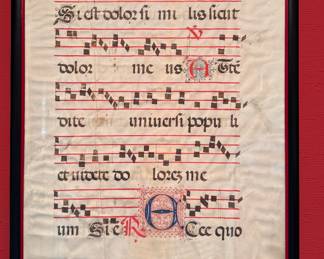 Si est dolor si mi lis sicut
dolor me us ℣ Atté
dite universi popu li
et videte do lorez me
um Si e ℟ Ecce quo